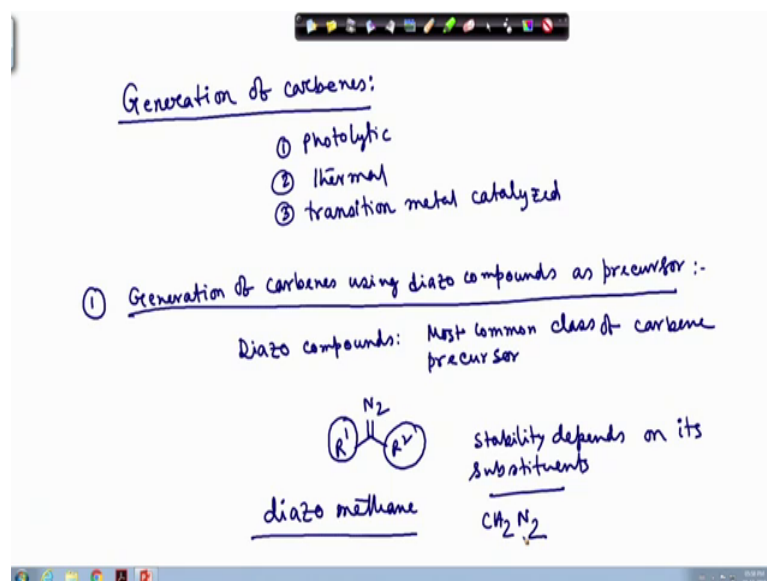 Generation of carbenes:
① Photolytic
② Thermal
③ transition metal catalyzed
① Generation of carbenes using diazo compounds as precursor :-
Diazo compounds: Most common class of carbene
precursor
N2
R1 R2
stability depends on its
substituents
diazo methane
CH2N2